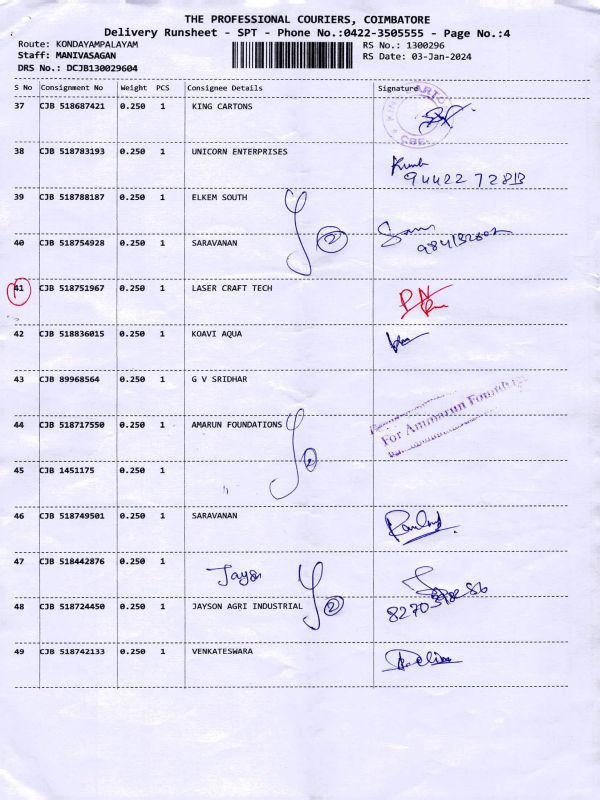 THE PROFESSIONAL COURIERS, COIMBATORE
Delivery Runsheet - SPT - Phone No.:0422-3505555 - Page No.:4
Route: KONDAYAMPALAYAM RS No.: 1300296
Staff: MANIVASAGAN RS Date: 03-Jan-2024
DRS No.: DCJB130029604
S No Consignment No Weight PCS Consignee Details Signature
37 CJB 518687421 0.250 1 KING CARTONS
38 CJB 518783193 0.250 1 UNICORN ENTERPRISES
94422 72813
39 CJB 518788187 0.250 1 ELKEM SOUTH
2
40 CJB 518754928 0.250 1 SARAVANAN
41 CJB 518751967 0.250 1 LASER CRAFT TECH
42 CJB 518836015 0.250 1 KOAVI AQUA
43 CJB 89968564 0.250 1 G V SRIDHAR
44 CJB 518717550 0.250 1 AMARUN FOUNDATIONS
For Ammarun
2
45 CJB 1451175 0.250 1
46 CJB 518749501 0.250 1 SARAVANAN
47 CJB 518442876 0.250 1
Jayson
2
48 CJB 518724450 0.250 1 JAYSON AGRI INDUSTRIAL
49 CJB 518742133 0.250 1 VENKATESWARA